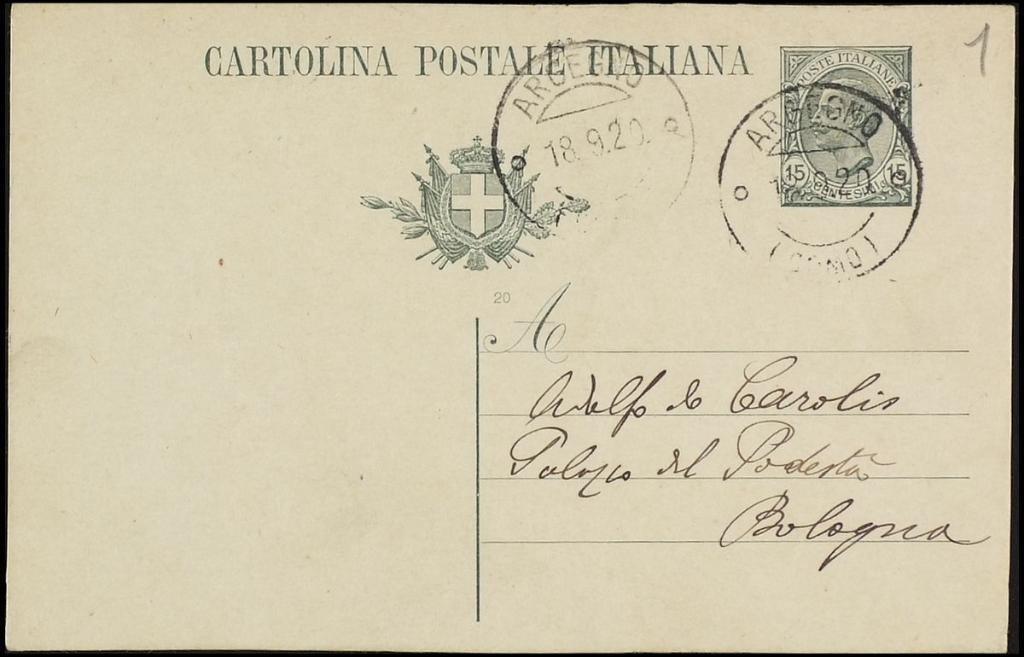 1
CARTOLINA POSTALE ITALIANA
POSTE ITALIANE
15 CENTESIMI 15
ARGEGNO
18.9.20.
ARGEGNO
9.20
(COMO)
20
A
Adolfo de Carolis
Palazzo del Podestà
Bologna